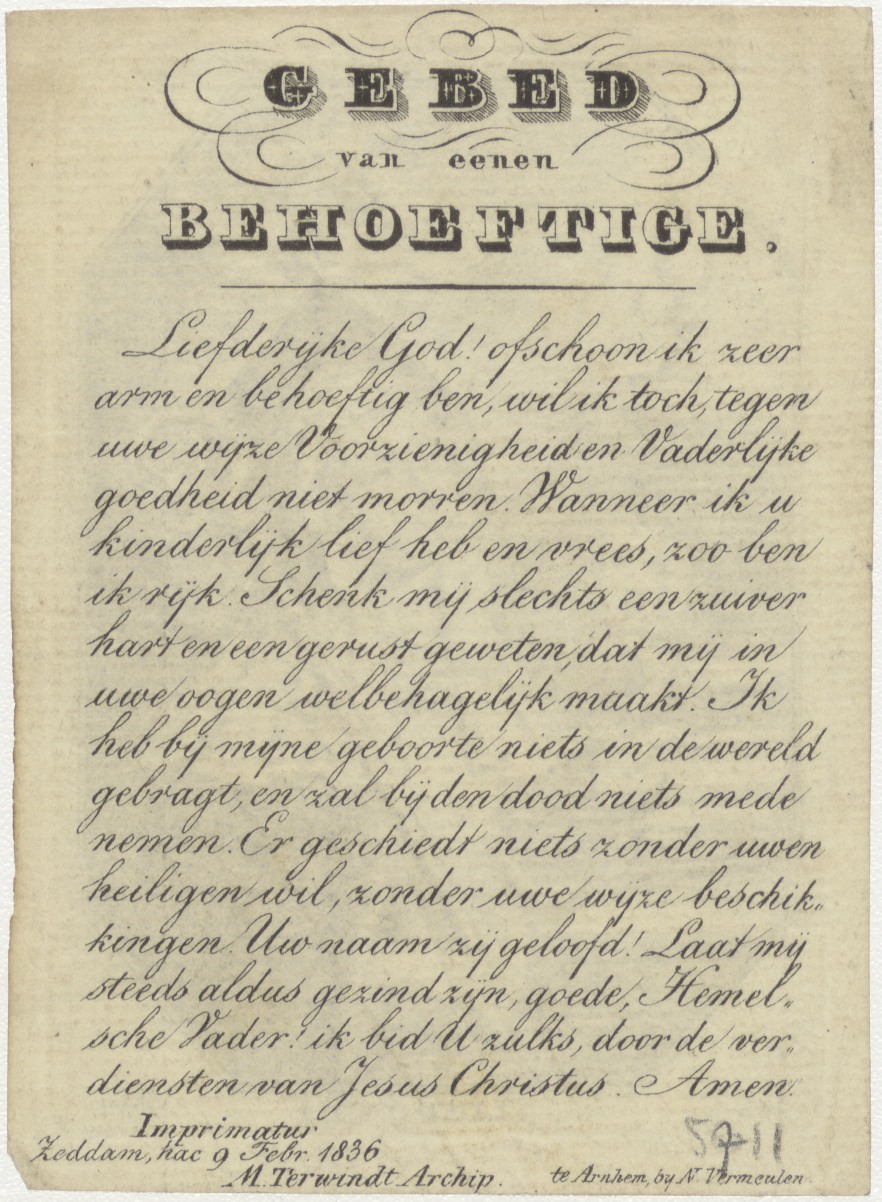 GEBED
van eenen
BEHOEFTIGE.
Liefderijke God! ofschoon ik zeer
arm en behoeftig ben, wil ik toch, tegen
uwe wijze Voorzienigheid en Vaderlijke
goedheid niet morren. Wanneer ik u
kinderlijk lief heb en vrees, zoo ben
ik rijk. Schenk mij slechts een zuiver
hart en een gerust geweten, dat mij in
uwe oogen welbehagelijk maakt. Ik
heb bij mijne geboorte niets in de wereld
gebragt, en zal bij den dood niets mede
nemen. Er geschiedt niets zonder uwen
heiligen wil, zonder uwe wijze beschik„
kingen. Uw naam zij geloofd! Laat mij
steeds aldus gezind zijn, goede, Hemel„
sche Vader! ik bid U zulks, door de ver„
diensten van Jesus Christus. Amen.
Imprimatur
Zeddam, hac 9 Febr. 1836
M. Terwindt Archip.
te Arnhem, by N. Vermeulen